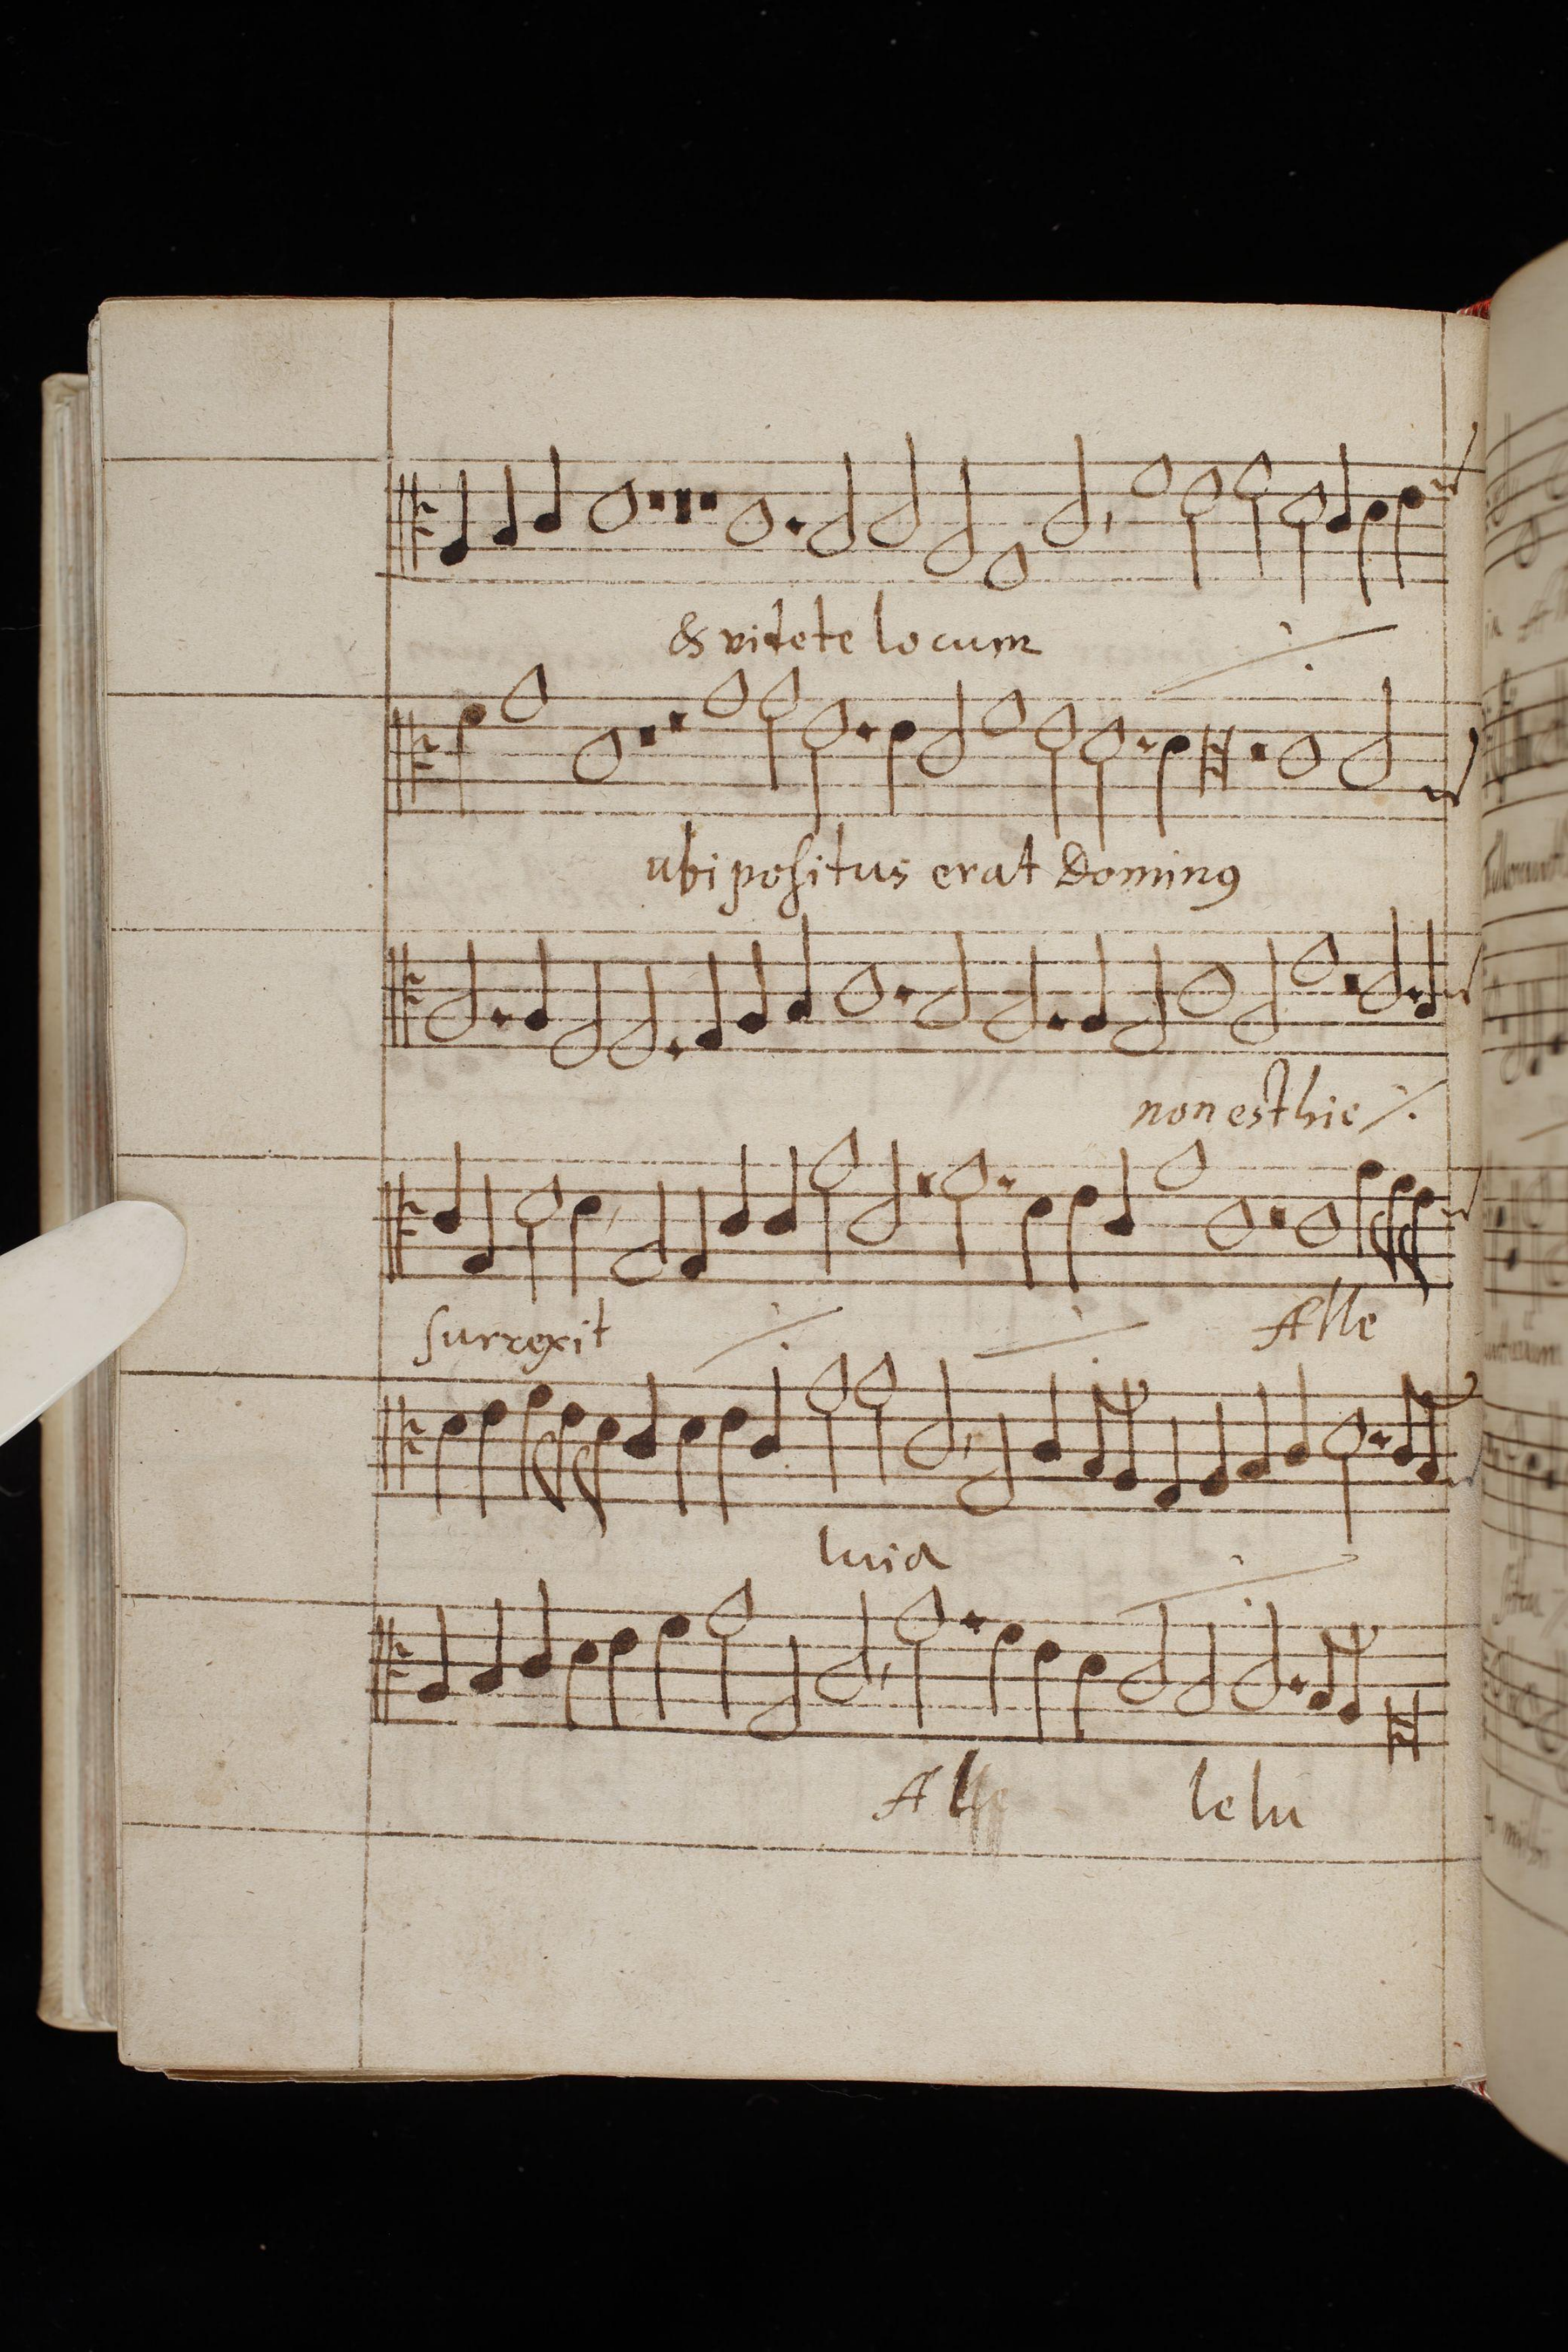 & videte locum ⁒
ubi positus erat Dominꝰ
non est hic ⁒
surrexit ⁒ ⁒ Alle
luia ⁒
Alle lelu